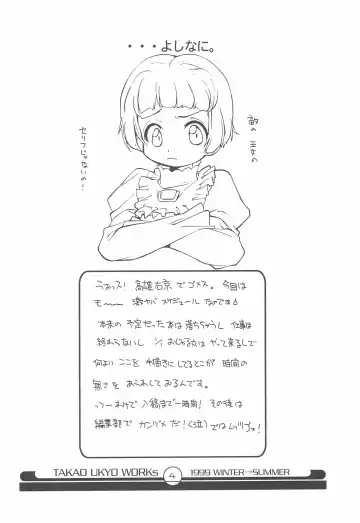 ・・・よしなに。
敵の 王女の
セリフじゃないの!
うおッス! 高雄右京 でゴメス。今回は
も〜〜 激ヤバ スケジュール なのです
本来の 予定だった本は 落ちちゃうし 仕事は
終わらないし おじゃる丸は やって来るしで
何より ここを 手描きにしてるとこが 時間の
無さを あらわしておるんです。
つーわけで 入稿まで一時間! その後は
編集部で カンヅメ だ!(泣) では
TAKAO UKYO WORKs
4
1999 WINTER→SUMMER